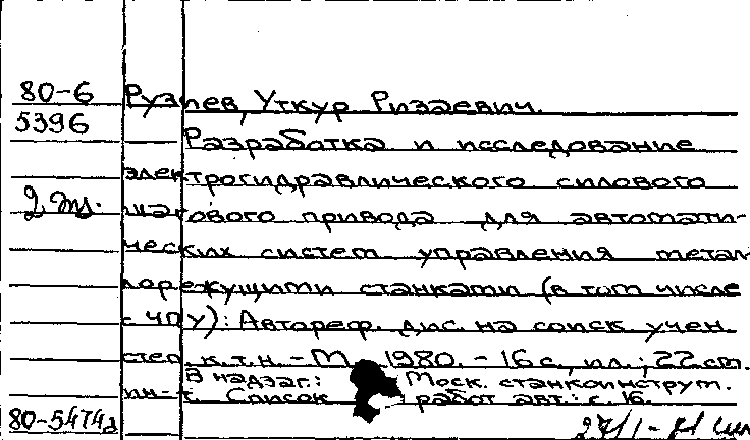 80-6
5396
2 эк.
Рузиев, Уткур Ризаевич.
Разработка и исследование
электрогидравлического силового
шагового привода для автомати-
ческих систем управления метал-
лорежущими станками (в том числе
с ЧПУ): Автореф. дис. на соиск. учен.
степ. к.т.н. - М., 1980. - 16 с., ил.; 22 см.
В надзаг.: Моск. станкоинструм.
ин-т. Список работ авт.: с. 16.
80-5474а